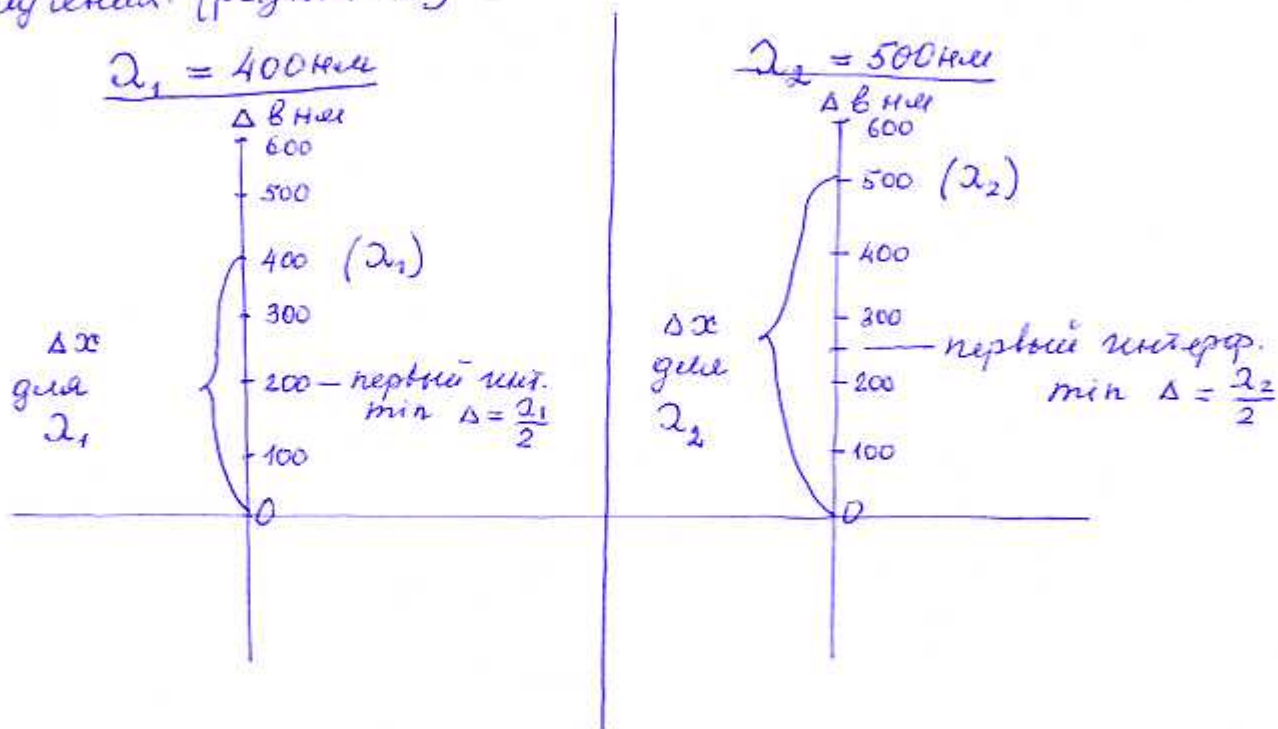 λ₁ = 400 нм
Δ в нм
600
500
400 (λ₁)
300
200 — первый инт.
min Δ = λ₁/2
100
0
Δx
для
λ₁
λ₂ = 500 нм
Δ в нм
600
500 (λ₂)
400
300
— первый интерф.
min Δ = λ₂/2
200
100
0
Δx
для
λ₂